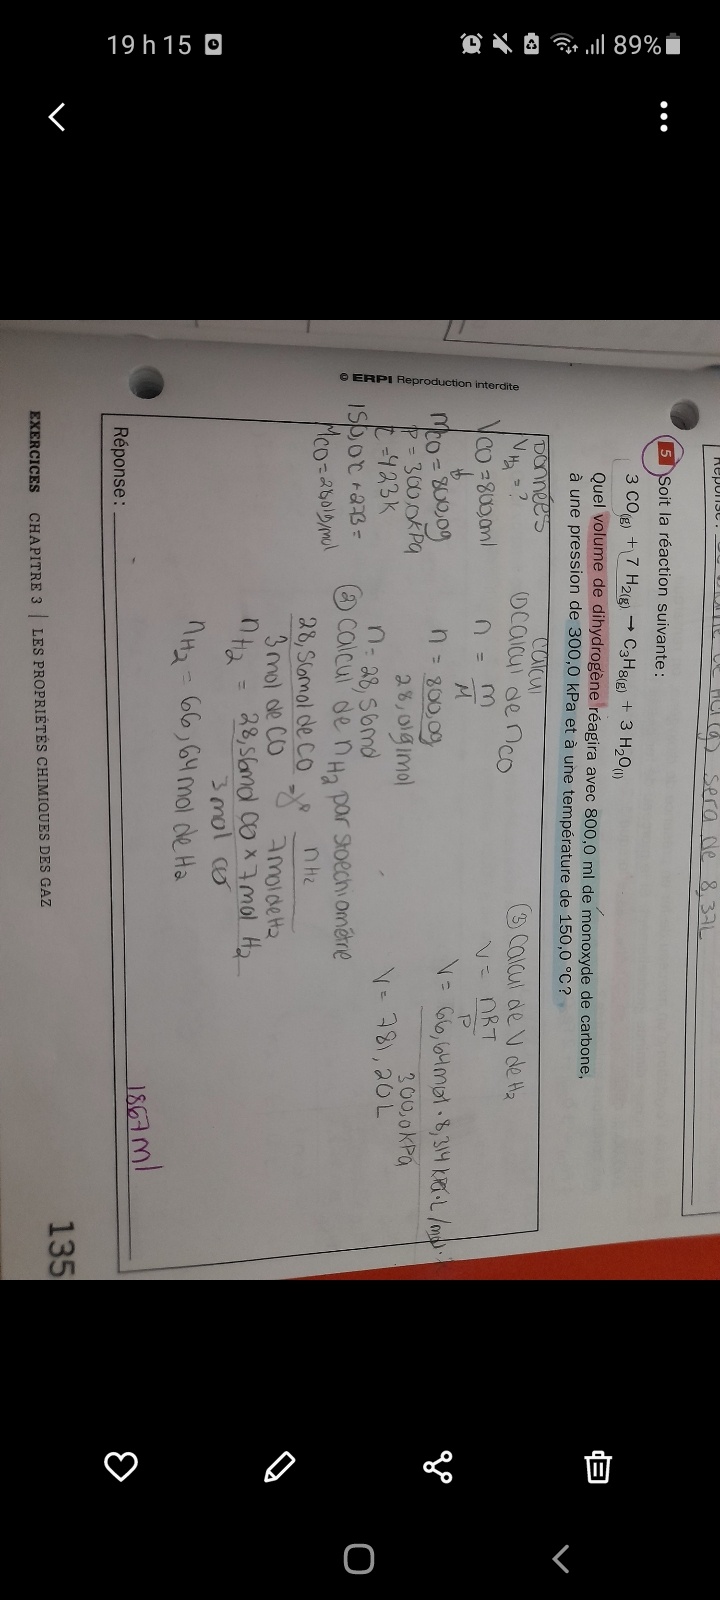 19 h 15
89%
© ERPI Reproduction interdite
5 Soit la réaction suivante :
3 CO(g) + 7 H2(g) → C3H8(g) + 3 H2O(l)
Quel volume de dihydrogène réagira avec 800,0 ml de monoxyde de carbone,
à une pression de 300,0 kPa et à une température de 150,0 °C ?
Données
VH2 = ?
VCO = 800,0ml
mCO = 800,0g
P = 300,0kPa
t = 423k
150,0°C + 273 =
MCO = 28,01g/mol
Calcul
① Calcul de nCO
n = m
M
n = 800,0g
28,01g/mol
n = 28,56mol
② Calcul de nH2 par stoechiométrie
28,56mol de CO = nH2
3mol de CO 7mol de H2
nH2 = 28,56mol CO × 7mol H2
3mol CO
nH2 = 66,64mol de H2
③ Calcul de V de H2
V = nRT
P
V = 66,64mol · 8,314 kPa·L/mol·
300,0kPa
V = 781,20L
Réponse :
1867ml
EXERCICES CHAPITRE 3 | LES PROPRIÉTÉS CHIMIQUES DES GAZ
135